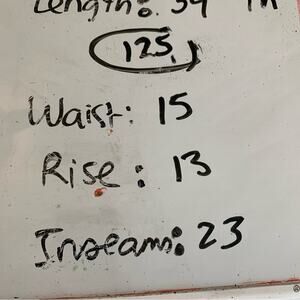 Length: 39 in
125.
Waist: 15
Rise: 13
Inseams: 23